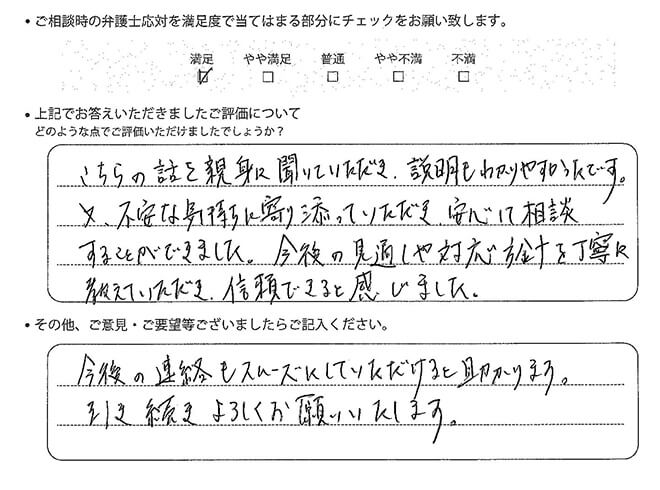 • ご相談時の弁護士応対を満足度で当てはまる部分にチェックをお願い致します。
満足 やや満足 普通 やや不満 不満
☑ □ □ □ □
• 上記でお答えいただきましたご評価について
どのような点でご評価いただけましたでしょうか?
こちらの話を親身に聞いていただき、説明もわかりやすかったです。
又、不安な気持ちに寄り添っていただき、安心して相談
することができました。今後の見通しや対応方針を丁寧に
教えていただき、信頼できると感じました。
• その他、ご意見・ご要望等ございましたらご記入ください。
今後の連絡もスムーズにしていただけると助かります。
引き続きよろしくお願いいたします。